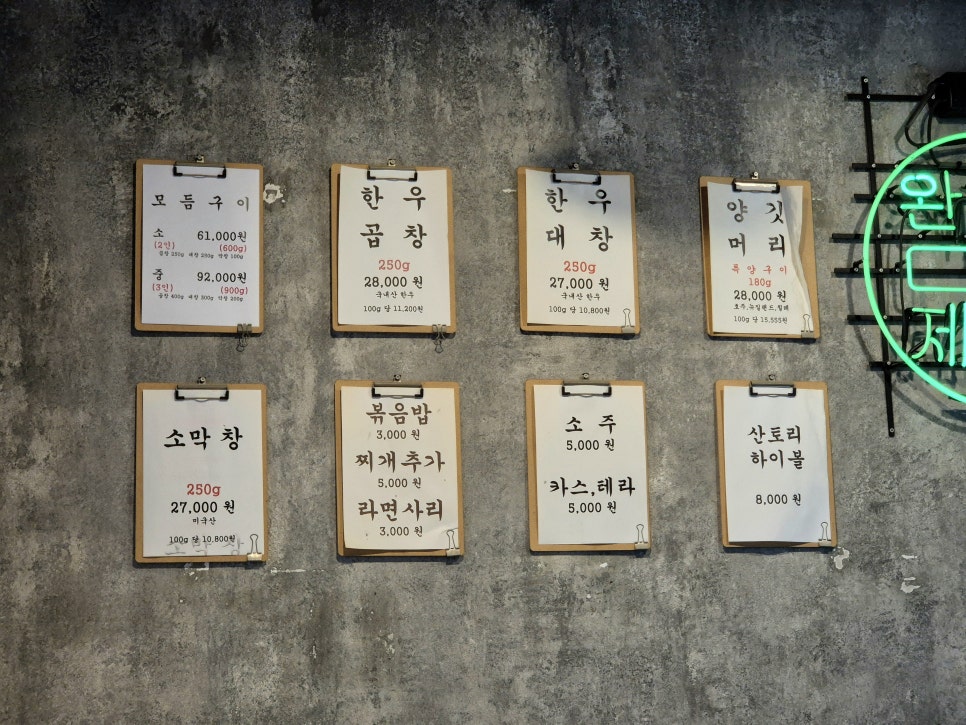 모듬구이
소 61,000원
(2인) (600g)
곱창 250g 대창 250g 막창 100g
중 92,000원
(3인) (900g)
곱창 400g 대창 300g 막창 200g
한우
곱창
250g
28,000 원
국내산 한우
100g 당 11,200원
한우
대창
250g
27,000 원
국내산 한우
100g 당 10,800원
양깃
머리
특양구이
180g
28,000 원
호주,뉴질랜드,칠레
100g 당 15,555원
소막창
250g
27,000 원
미국산
100g 당 10,800원
소막창
볶음밥
3,000 원
찌개추가
5,000 원
라면사리
3,000 원
소주
5,000 원
카스,테라
5,000 원
산토리
하이볼
8,000 원
완
제